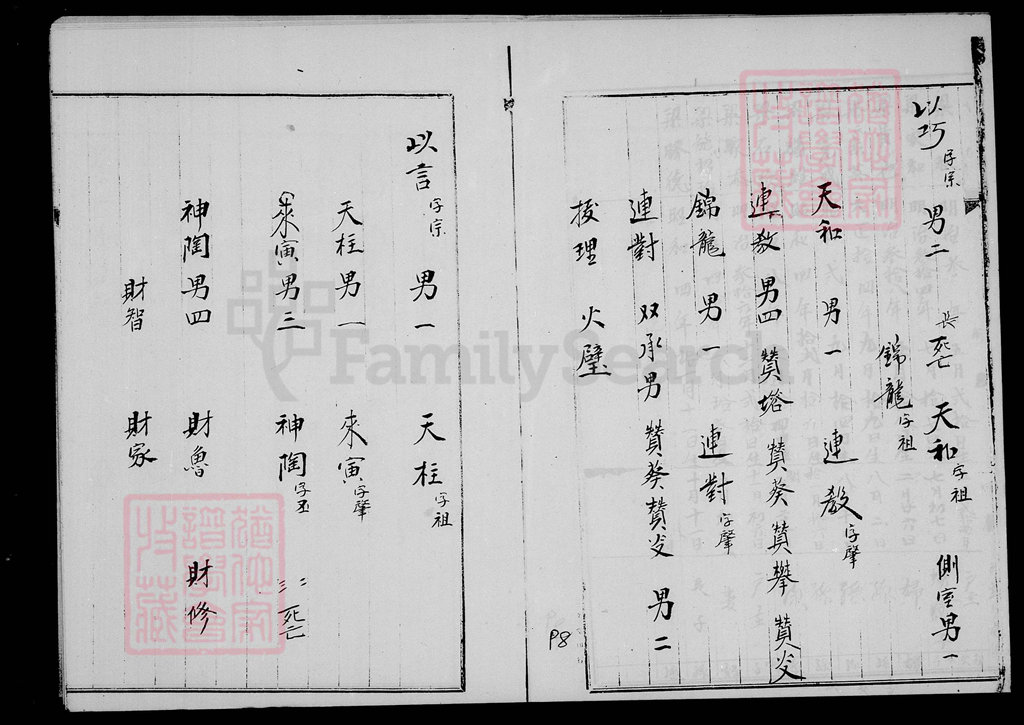 以巧 字宗 男二 長死亡 天和 字祖 側室男一
錦龍 字祖
天和 男一 連教 字肇
連教 男四 贊塔 贊葵 贊攀 贊炎
錦龍 男一 連對 字肇
連對 双承男 贊葵 贊炎 男二
按理 火璧
P8
以言 字宗 男一 天柱 字祖
天柱 男一 來寅 字肇
來寅 男三 神陶 字丕 二三死亡
神陶 男四 財魯 財修
財智 財家
FamilySearch